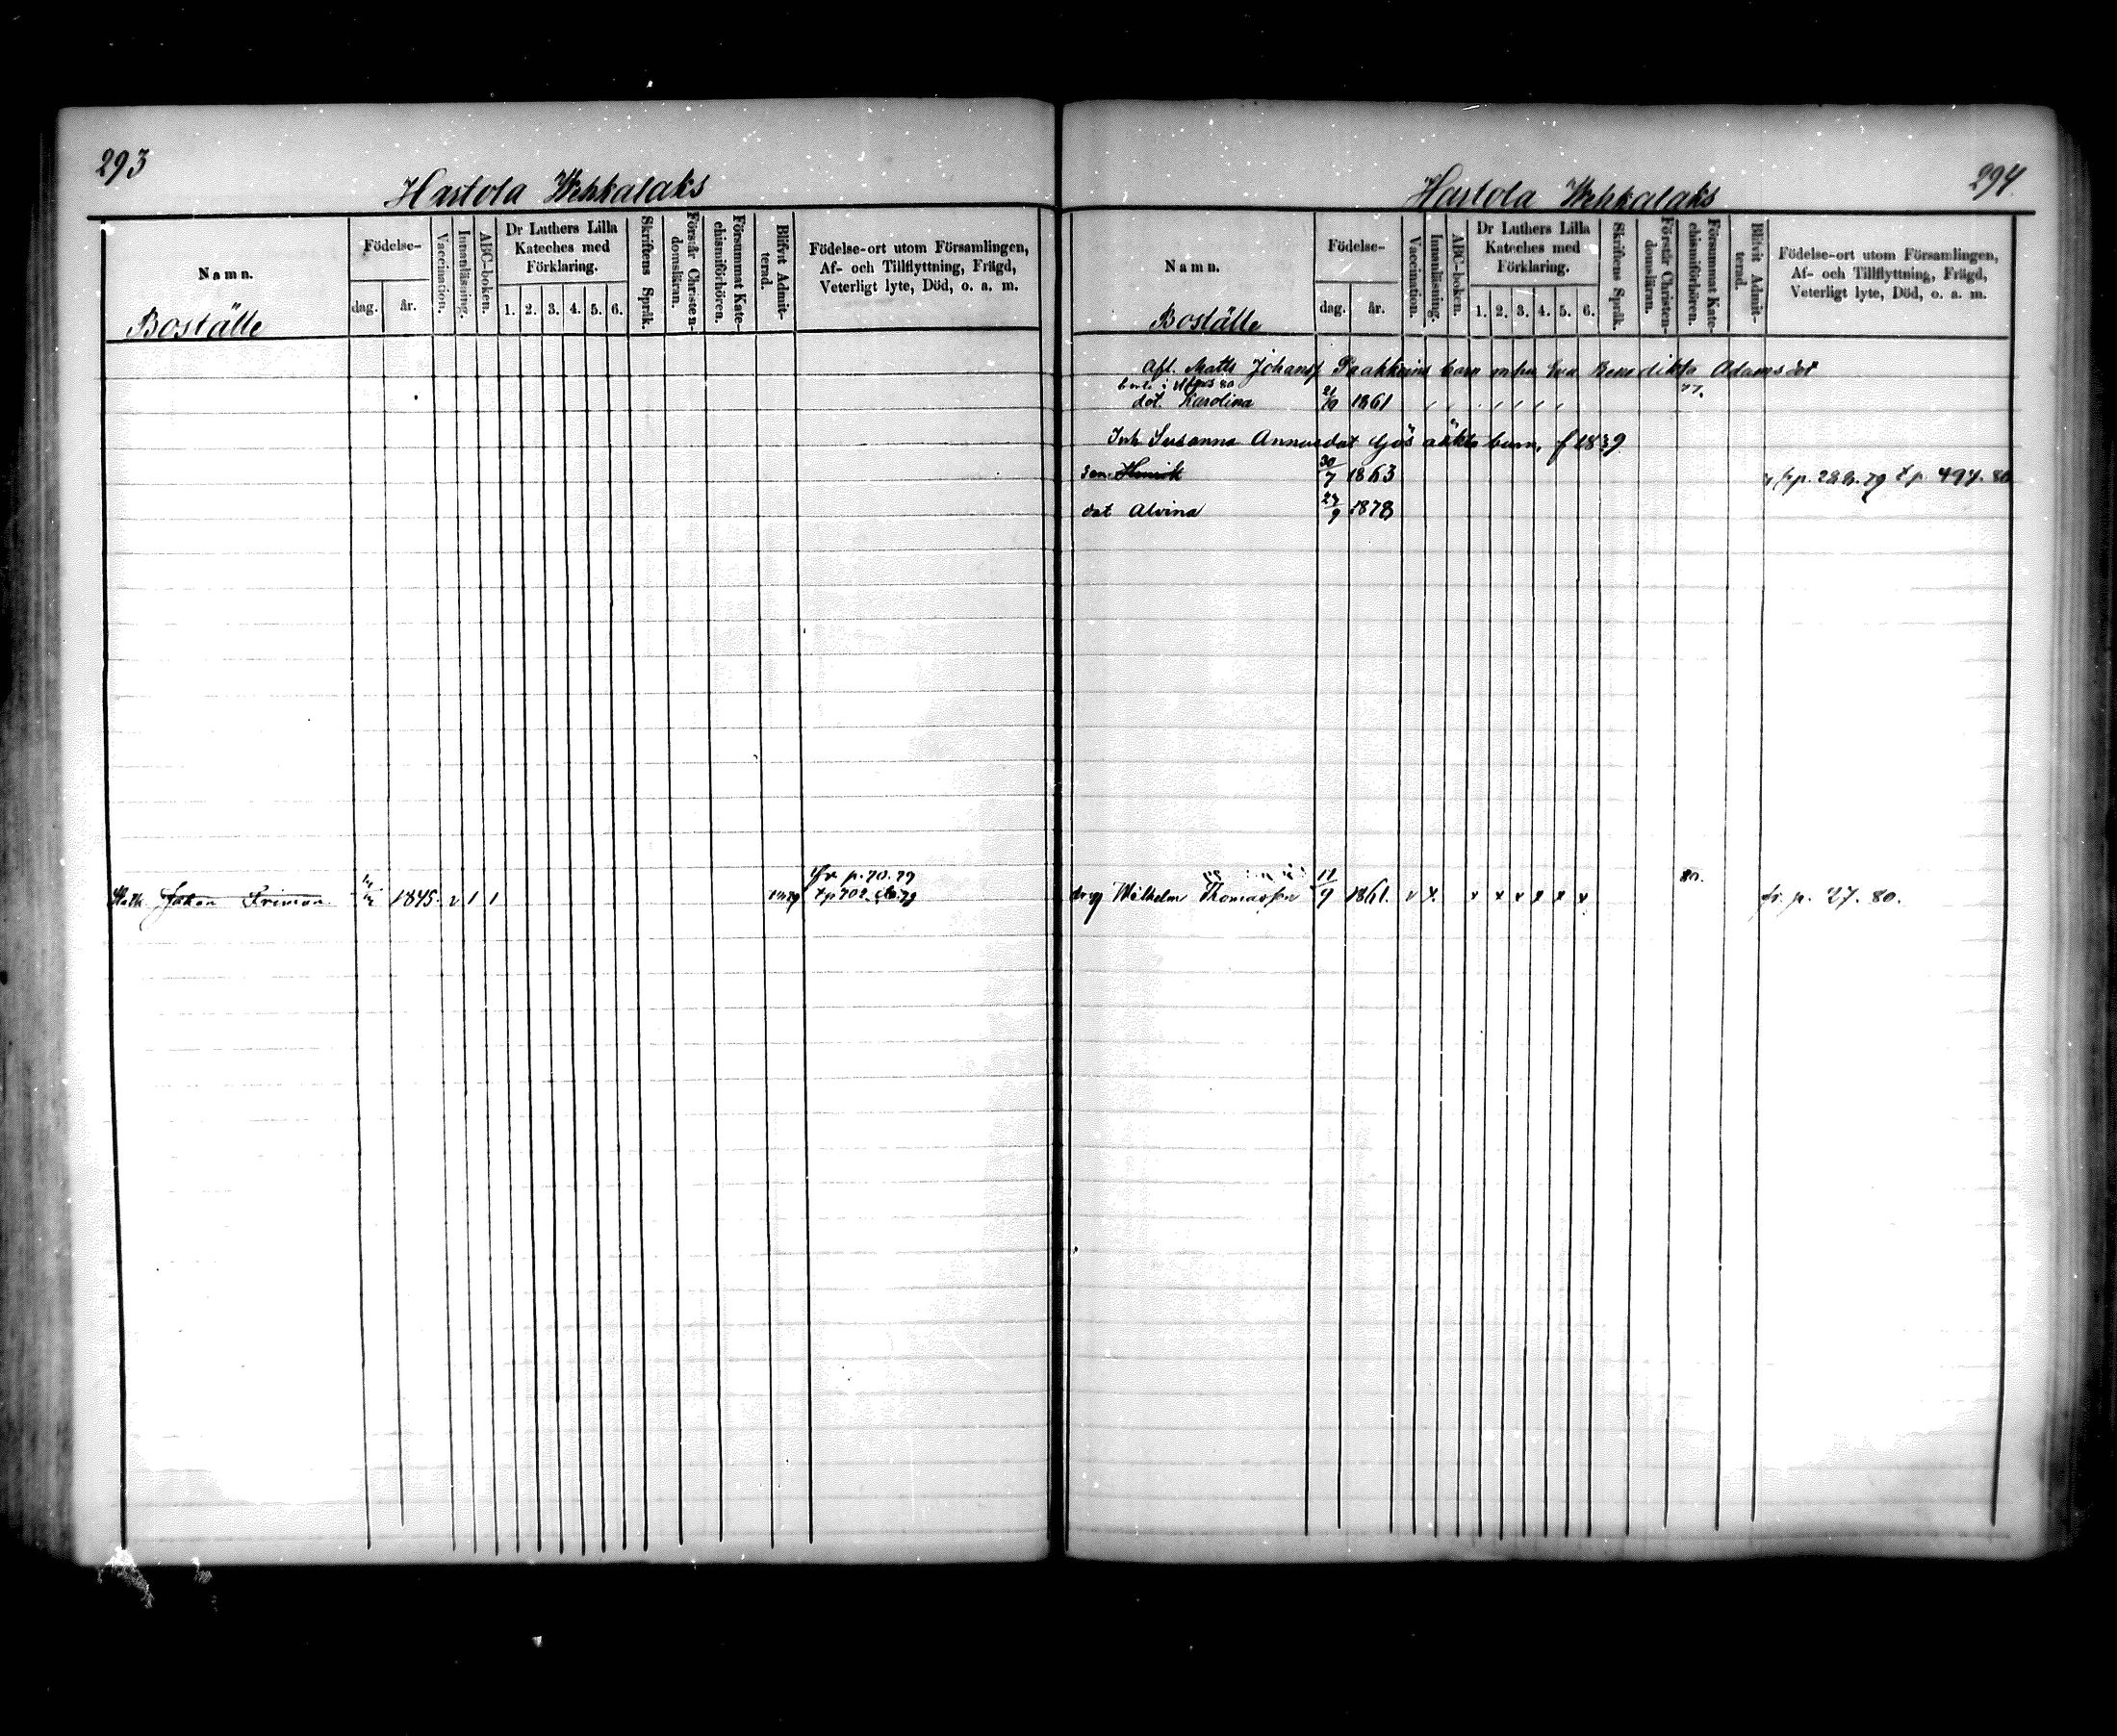 293
Hartola Wehkalaks
Namn.
Födelse-
dag.
år.
Vaccination.
Innanläsning.
ABC-boken.
Dr Luthers Lilla
Kateches med
Förklaring.
1. 2. 3. 4. 5. 6.
Skriftens Språk.
Förstår Christen-
domsläran.
Försummat Kate-
chismiförhören.
Blifvit Admit-
terad.
Födelse-ort utom Församlingen,
Af- och Tillflyttning, Frägd,
Veterligt lyte, Död, o. a. m.
Boställe
fr p. 70. 79
Johan Friman 1845. v 1 1 t p 702
294
Hartola Wehkalaks
Namn.
Födelse-
dag.
år.
Vaccination.
Innanläsning.
ABC-boken.
Dr Luthers Lilla
Kateches med
Förklaring.
1. 2. 3. 4. 5. 6.
Skriftens Språk.
Förstår Christen-
domsläran.
Försummat Kate-
chismiförhören.
Blifvit Admit-
terad.
Födelse-ort utom Församlingen,
Af- och Tillflyttning, Frägd,
Veterligt lyte, Död, o. a. m.
Boställe
Afl. Matts Johansf barn m hu Eva Benedikta Adamsdot
dot. Karolina 1861 77.
Inh. Susanna Annusdot barn, f 1839
son Henrik 30/7 1863 fr p. 288. 79 t p. 497. 80
dot Alvina 27/9 1878
80.
drg Wilhelm Thomasson 12/9 1861. v x. x x x x x x fr. p. 27. 80.